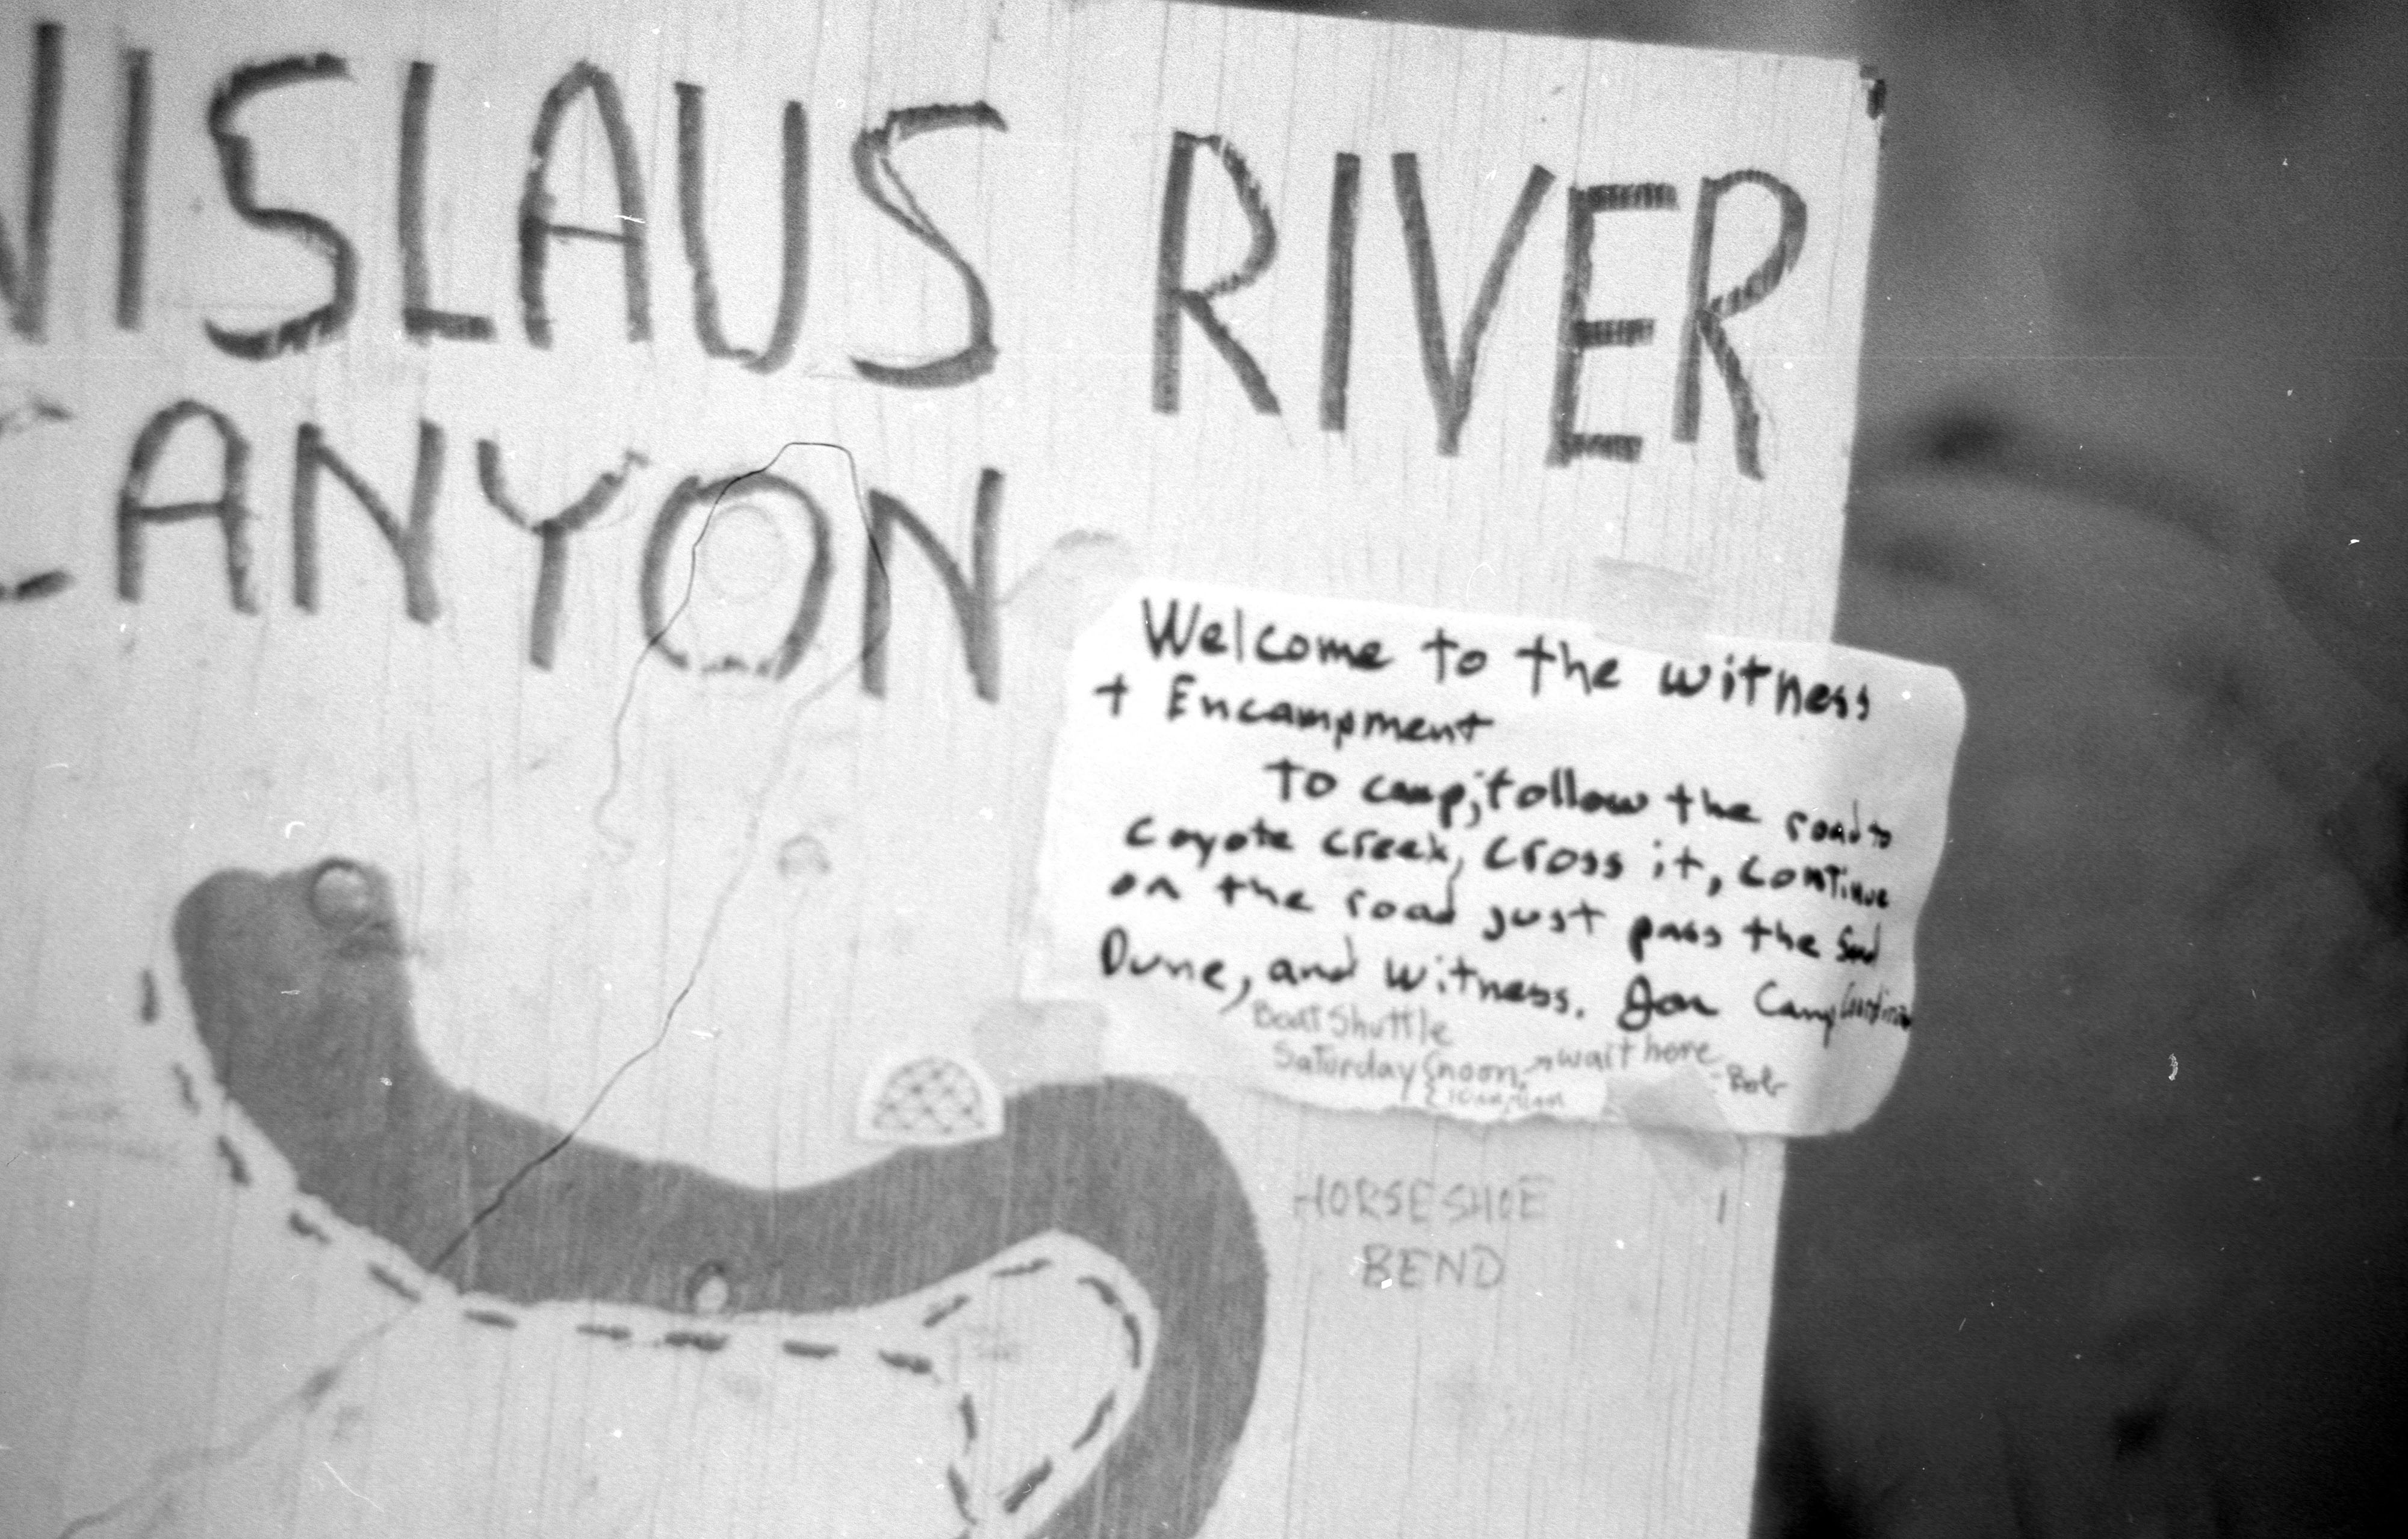 NISLAUS RIVER
CANYON
Welcome to the witness
+ Encampment
To camp, follow the road to
Coyote Creek, Cross it, Continue
on the road just pass the Sand
Dune, and witness. Camp
Boat Shuttle
Saturday noon, wait here
Bob
HORSESHOE
BEND